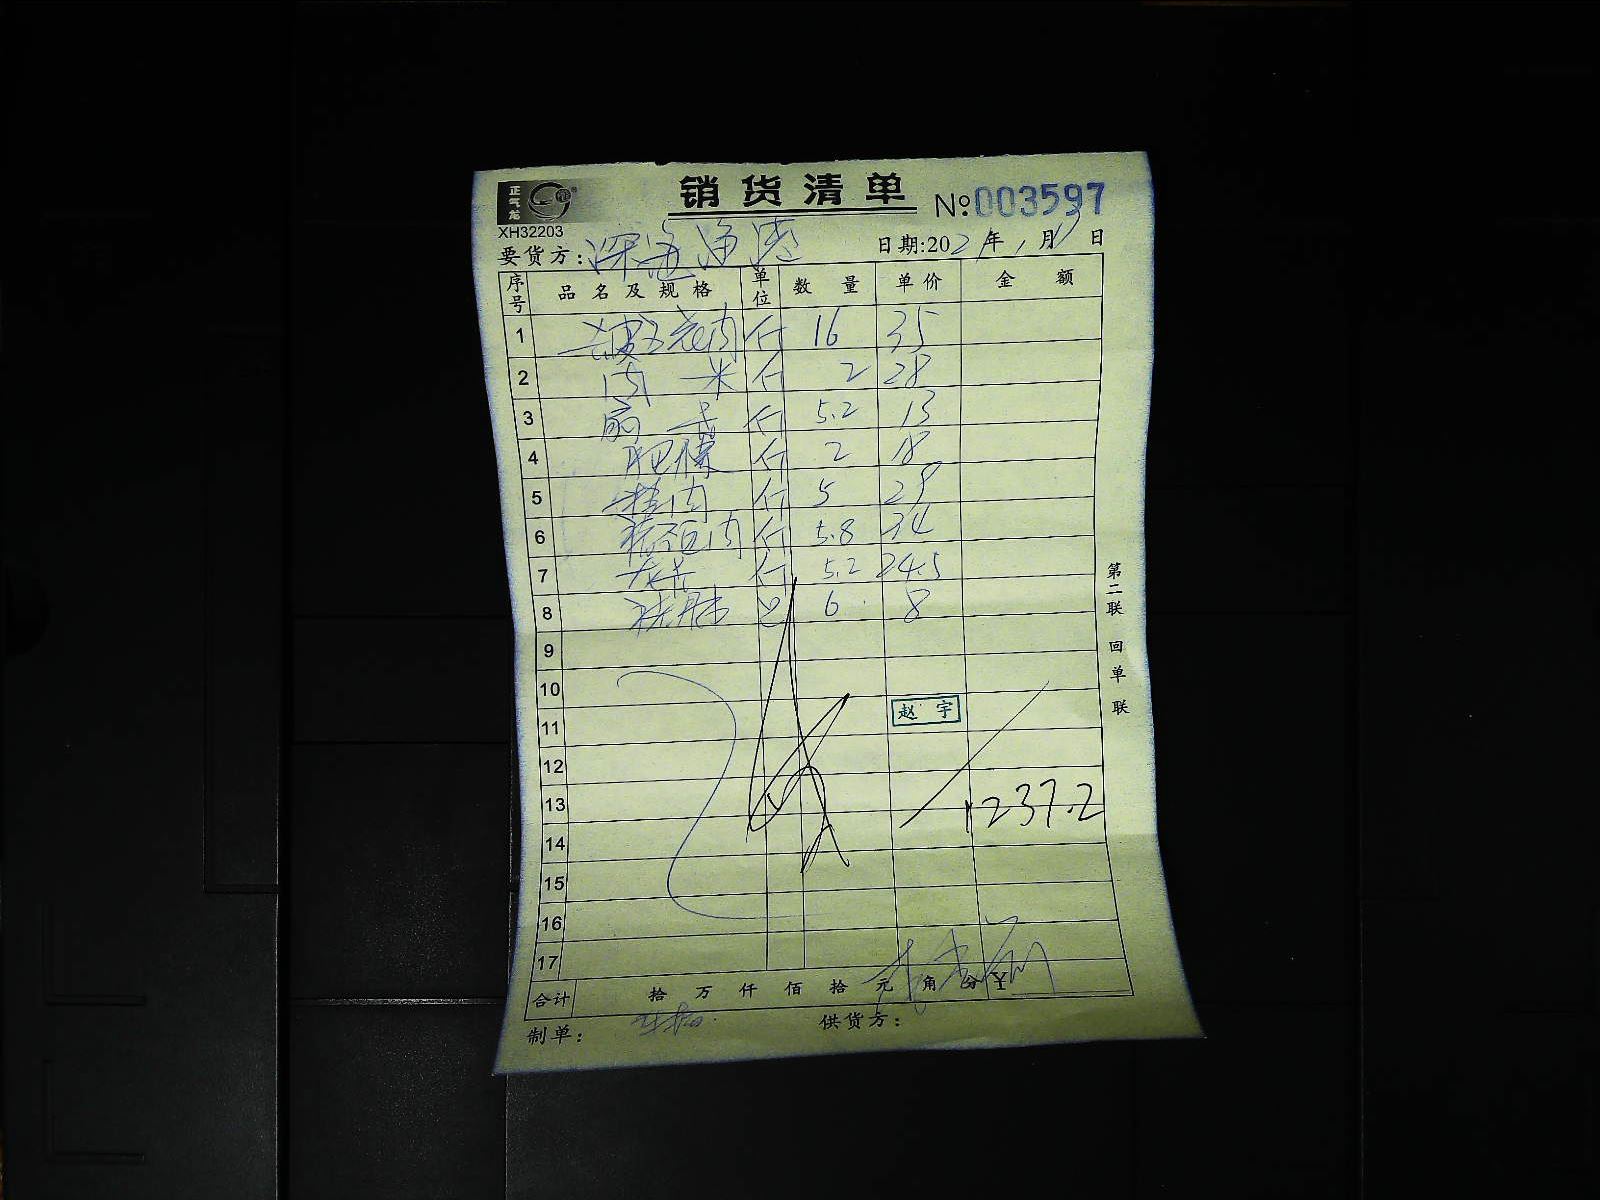 正气龙
销货清单 №003597
XH32203
要货方：深海渔港 日期:2021年1月17日
序号 品名及规格 单位 数量 单价 金额
1 斤 16 35
2 肉 斤 2 28
3 斤 5.2 13
4 肥膘 斤 2 18
5 肉 斤 5 29
6 肉 斤 5.8 34
7 斤 5.2 24.5
8 6 8
9
10
11 赵宇
12
13 1237.2
14
15
16
17
合计 拾 万 仟 佰 拾 元 角 分 ¥
制单： 供货方：
第二联 回单联